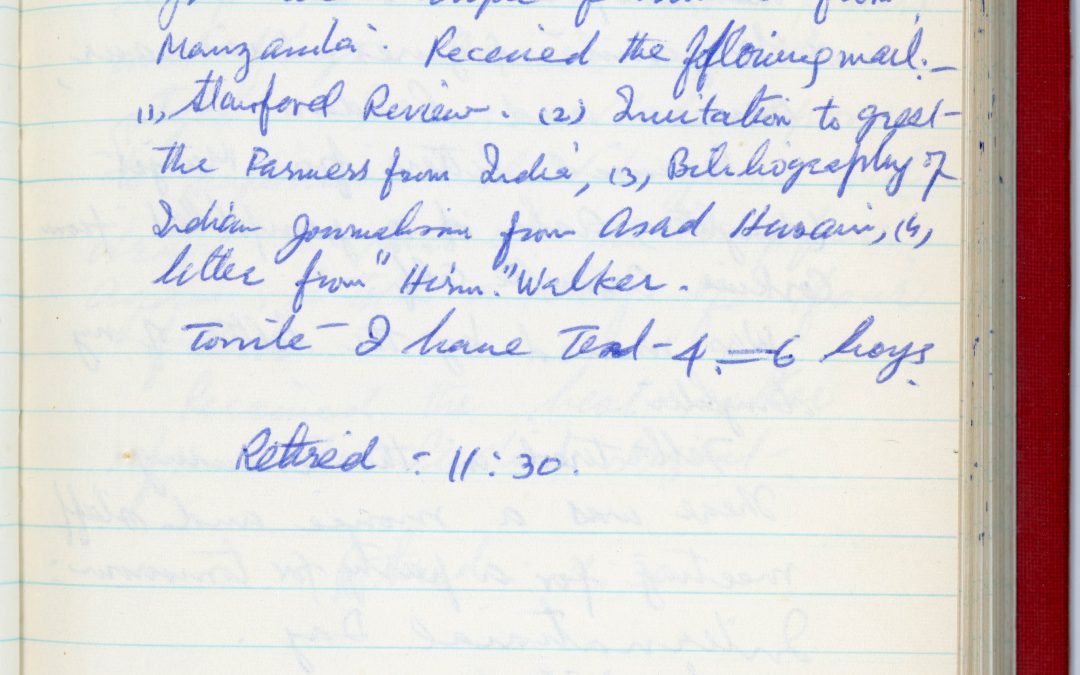 from
Manzanda. Received the following mail:—
(1), Stanford Review. (2) Invitation to greet
the Farmers from India, (3), Bibliography of
Indian Journalism from Asad Husain, (4),
letter from "Hirm." Walker.
Tonite I have - 4 = 6 boys.
Retired = 11:30.